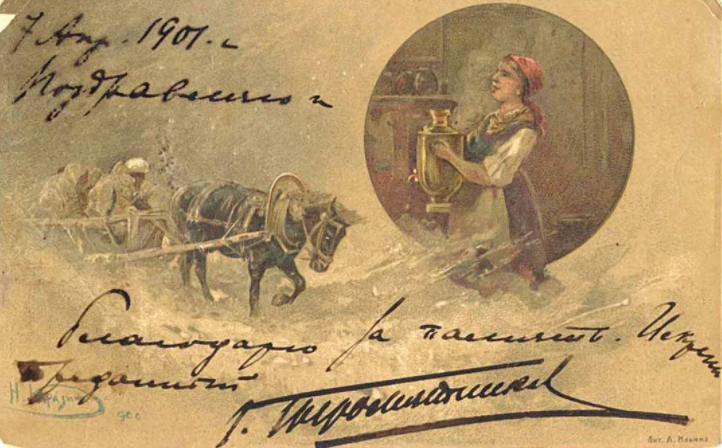 7 Апр. 1901. г.
Поздравляю и
благодарю за память. Искренно
преданный
Н. Каразин
900
Лит. А. Ильина